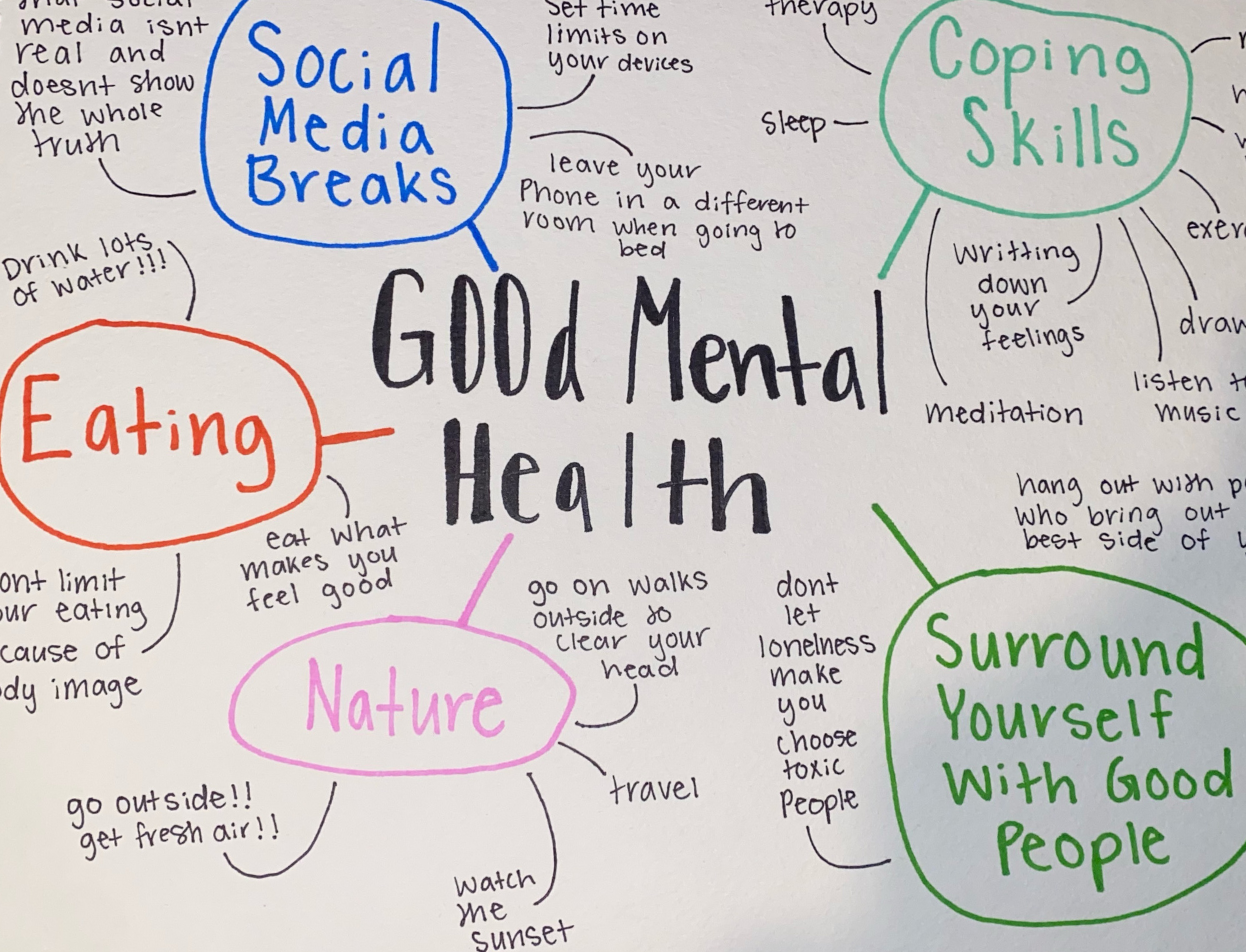 media isnt
real and
doesnt show
the whole
truth
Social
Media
Breaks
Set time
limits on
your devices
leave your
Phone in a different
room when going to
bed
therapy
sleep
Coping
Skills
writting
down
your
feelings
meditation
listen
music
Drink lots
of water!!!
Eating
eat what
makes you
feel good
limit
eating
of
image
GOOd Mental
Health
Nature
go on walks
outside to
clear your
head
travel
watch
the
sunset
go outside!!
get fresh air!!
hang out with
who bring out
best side of
Surround
Yourself
With Good
People
dont
let
lonelness
make
you
choose
toxic
People